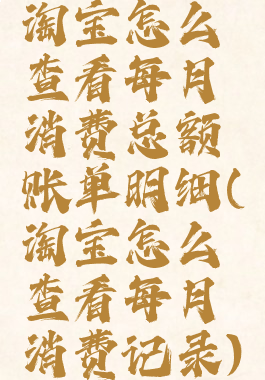 淘宝怎么
查看每月
消费总额
账单明细(
淘宝怎么
查看每月
消费记录)